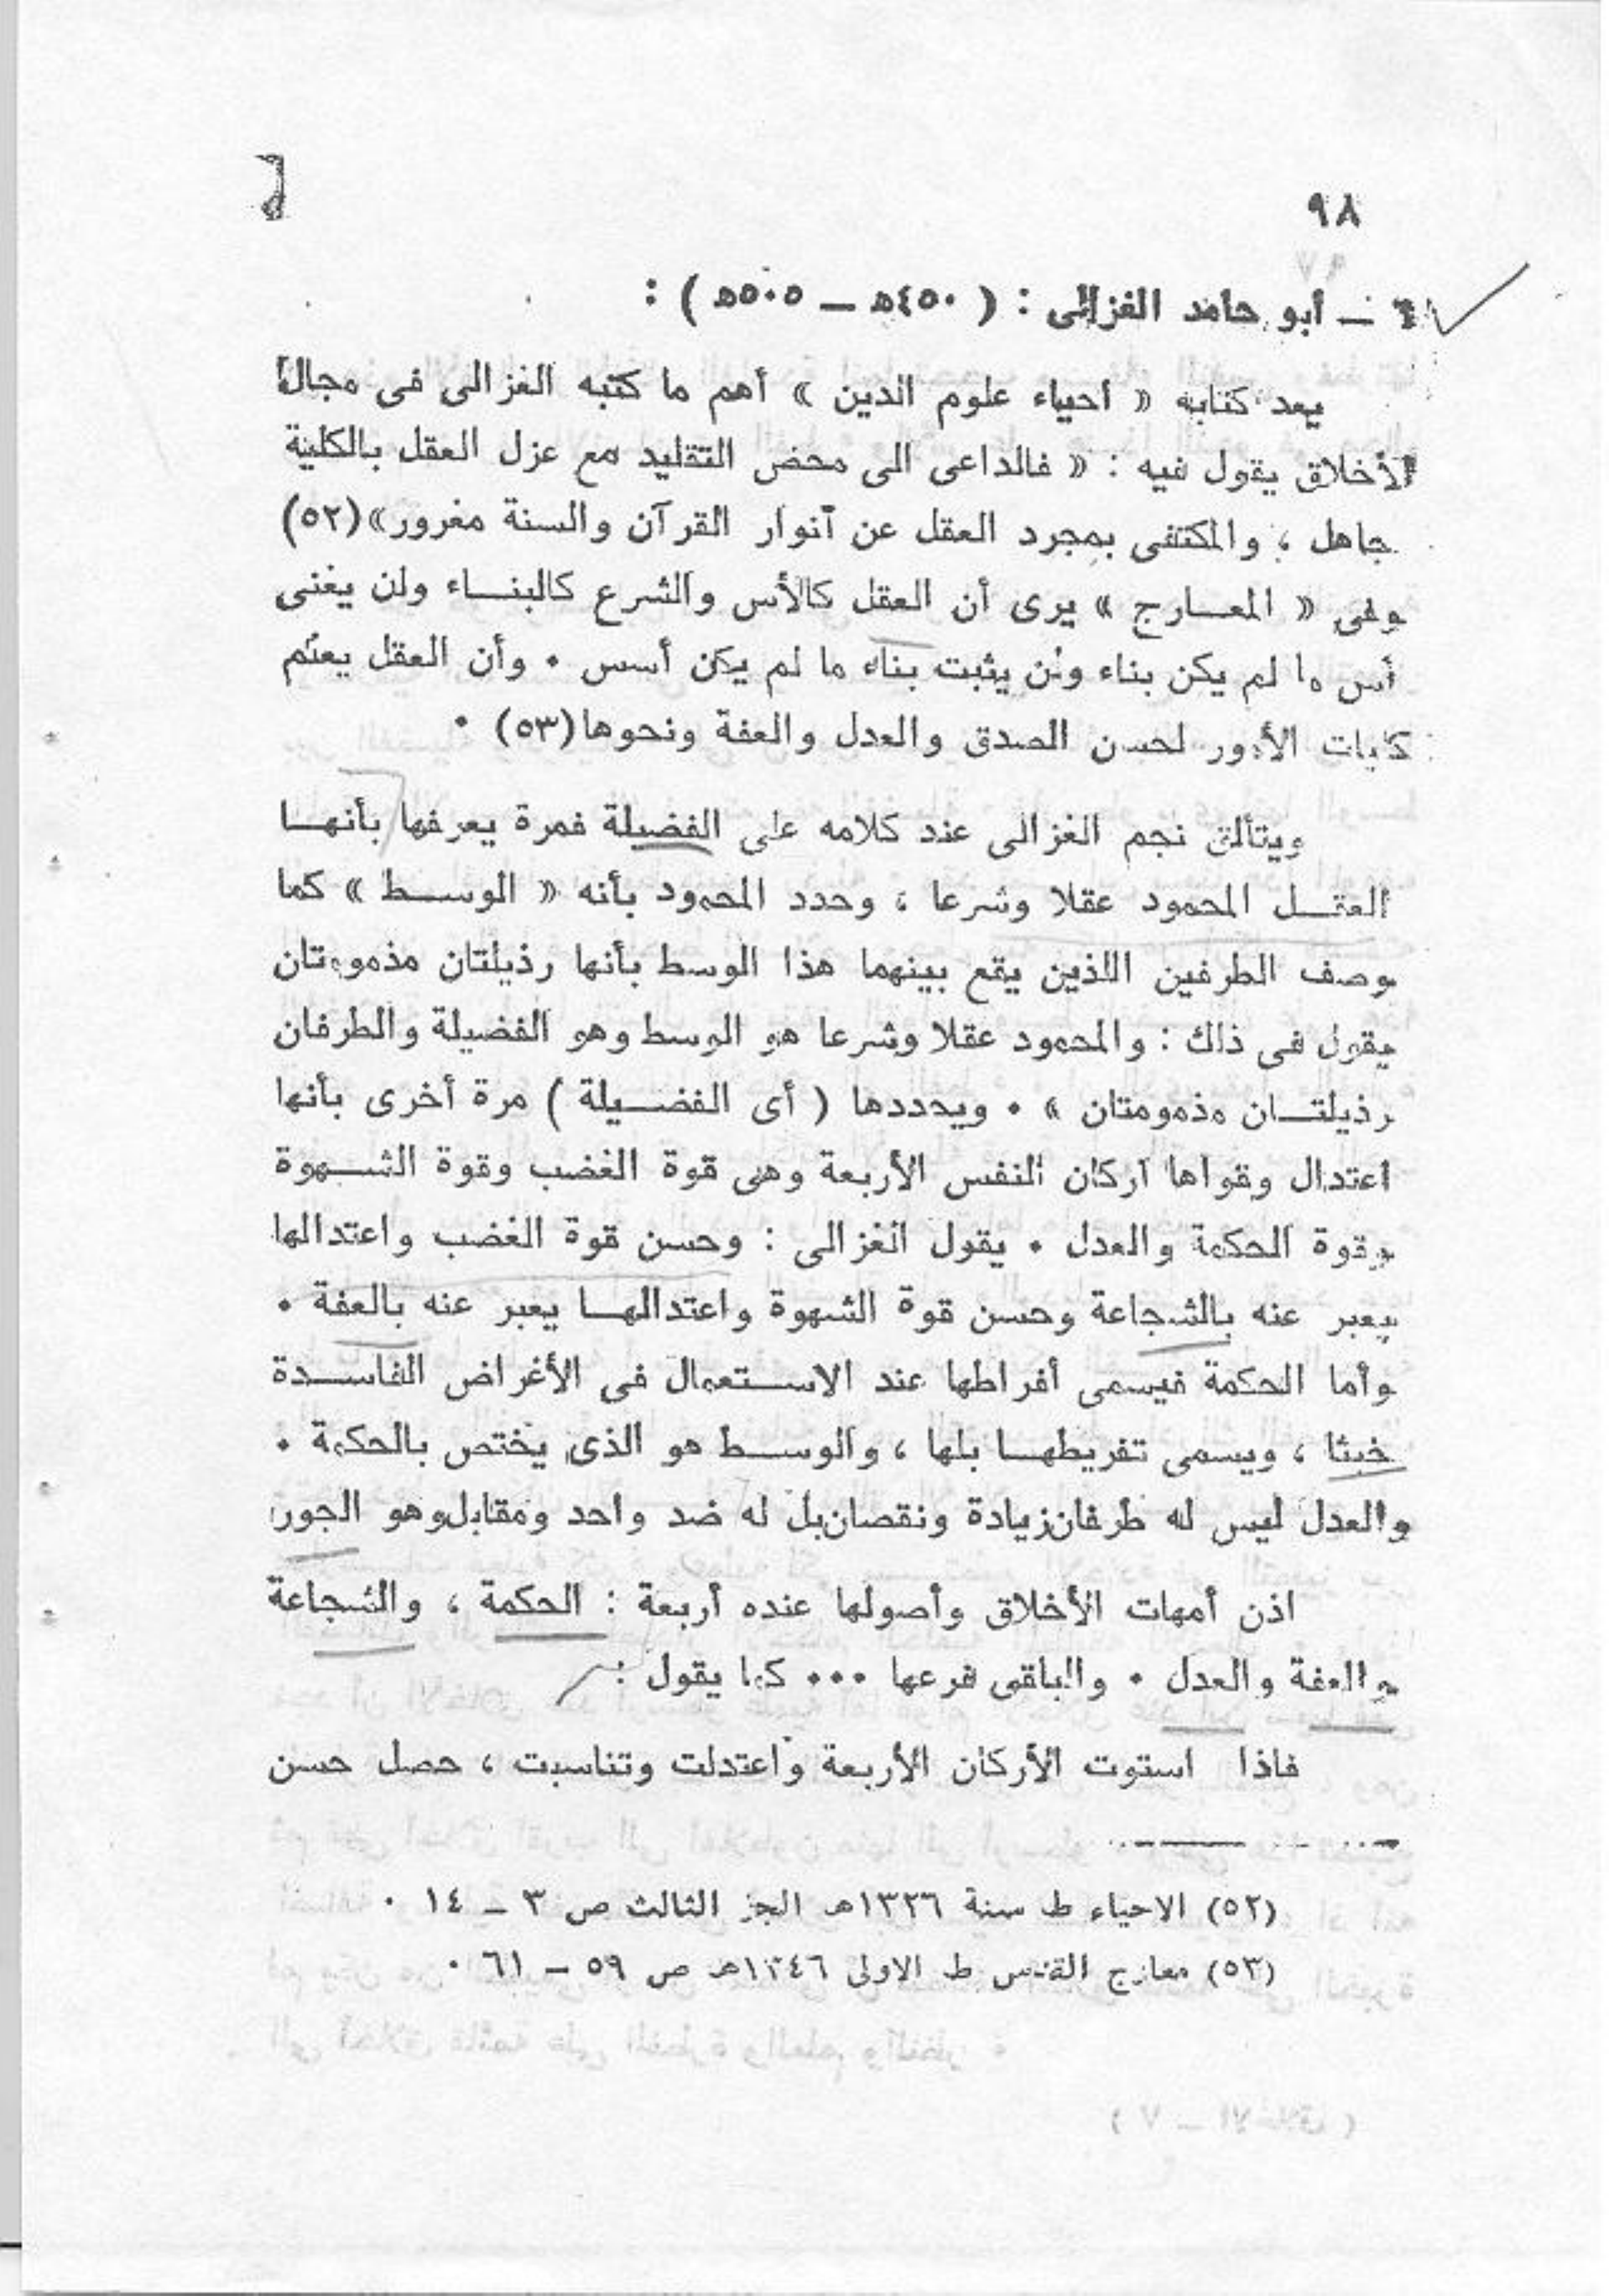 ٩٨
٦ ــ أبو حامد الغزالى : ( ٤٥٠هـ ــ ٥٠٥هـ ) :
يعد كتابه « احياء علوم الدين » أهم ما كتبه الغزالى فى مجال
الأخلاق يقول فيه : « فالداعى الى محض التقليد مع عزل العقل بالكلية
جاهل ، والمكتفى بمجرد العقل عن آنوار القرآن والسنة مغرور»(٥٢)
وفى « المعــارج » يرى أن العقل كالأس والشرع كالبنــاء ولن يغنى
أس ما لم يكن بناء ولن يثبت بناء ما لم يكن أسس ٠ وأن العقل يعلم
كليات الأمور لحسن الصدق والعدل والعفة ونحوها(٥٣) ٠
ويتألق نجم الغزالى عند كلامه على الفضيلة فمرة يعرفها بأنهــا
العقــل المحمود عقلا وشرعا ، وحدد المحمود بأنه « الوســط » كما
وصف الطرفين اللذين يقع بينهما هذا الوسط بأنها رذيلتان مذمومتان
يقول فى ذلك : والمحمود عقلا وشرعا هو الوسط وهو الفضيلة والطرفان
رذيلتــان مذمومتان » ٠ ويحددها ( أى الفضــيلة ) مرة أخرى بأنها
اعتدال وقواها آركان النفس الأربعة وهى قوة الغضب وقوة الشــهوة
وقوة الحكمة والعدل ٠ يقول الغزالى : وحسن قوة الغضب واعتدالها
يعبر عنه بالشجاعة وحسن قوة الشهوة واعتدالهــا يعبر عنه بالعفة ٠
وأما الحكمة فيسمى أفراطها عند الاســتعمال فى الأغراض الفاســدة
خبثا ، ويسمى تفريطهــا بلها ، والوســط هو الذى يختص بالحكمة ٠
والعدل ليس له طرفان زيادة ونقصان بل له ضد واحد ومقابل وهو الجور
اذن أمهات الأخلاق وأصولها عنده أربعة : الحكمة ، والشجاعة
والعفة والعدل ٠ والباقى فرعها ٠٠٠ كما يقول :
فاذا استوت الأركان الأربعة واعتدلت وتناسبت ، حصل حسن
(٥٢) الاحياء ط سنة ١٣٢٦هـ الجز الثالث ص ٣ ــ ١٤ ٠
(٥٣) معارج القدس ط الاولى ١٣٤٦هـ ص ٥٩ ــ ٦١ ٠